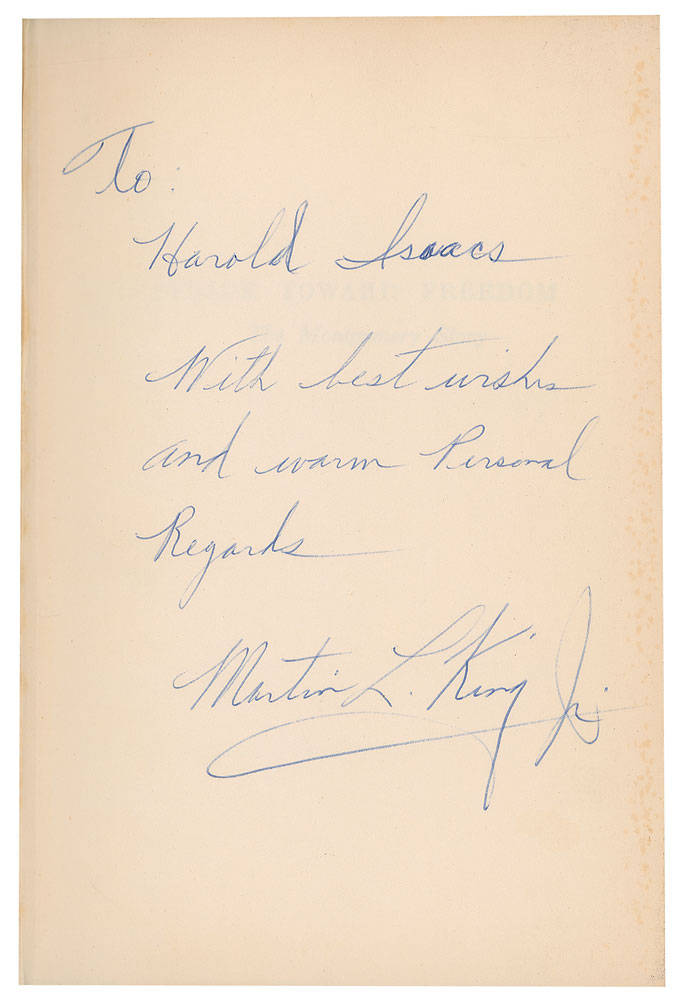 To:
Harold Isaacs
TOWARD FREEDOM
Montgomery
With best wishes
and warm Personal
Regards
Martin L. King Jr.